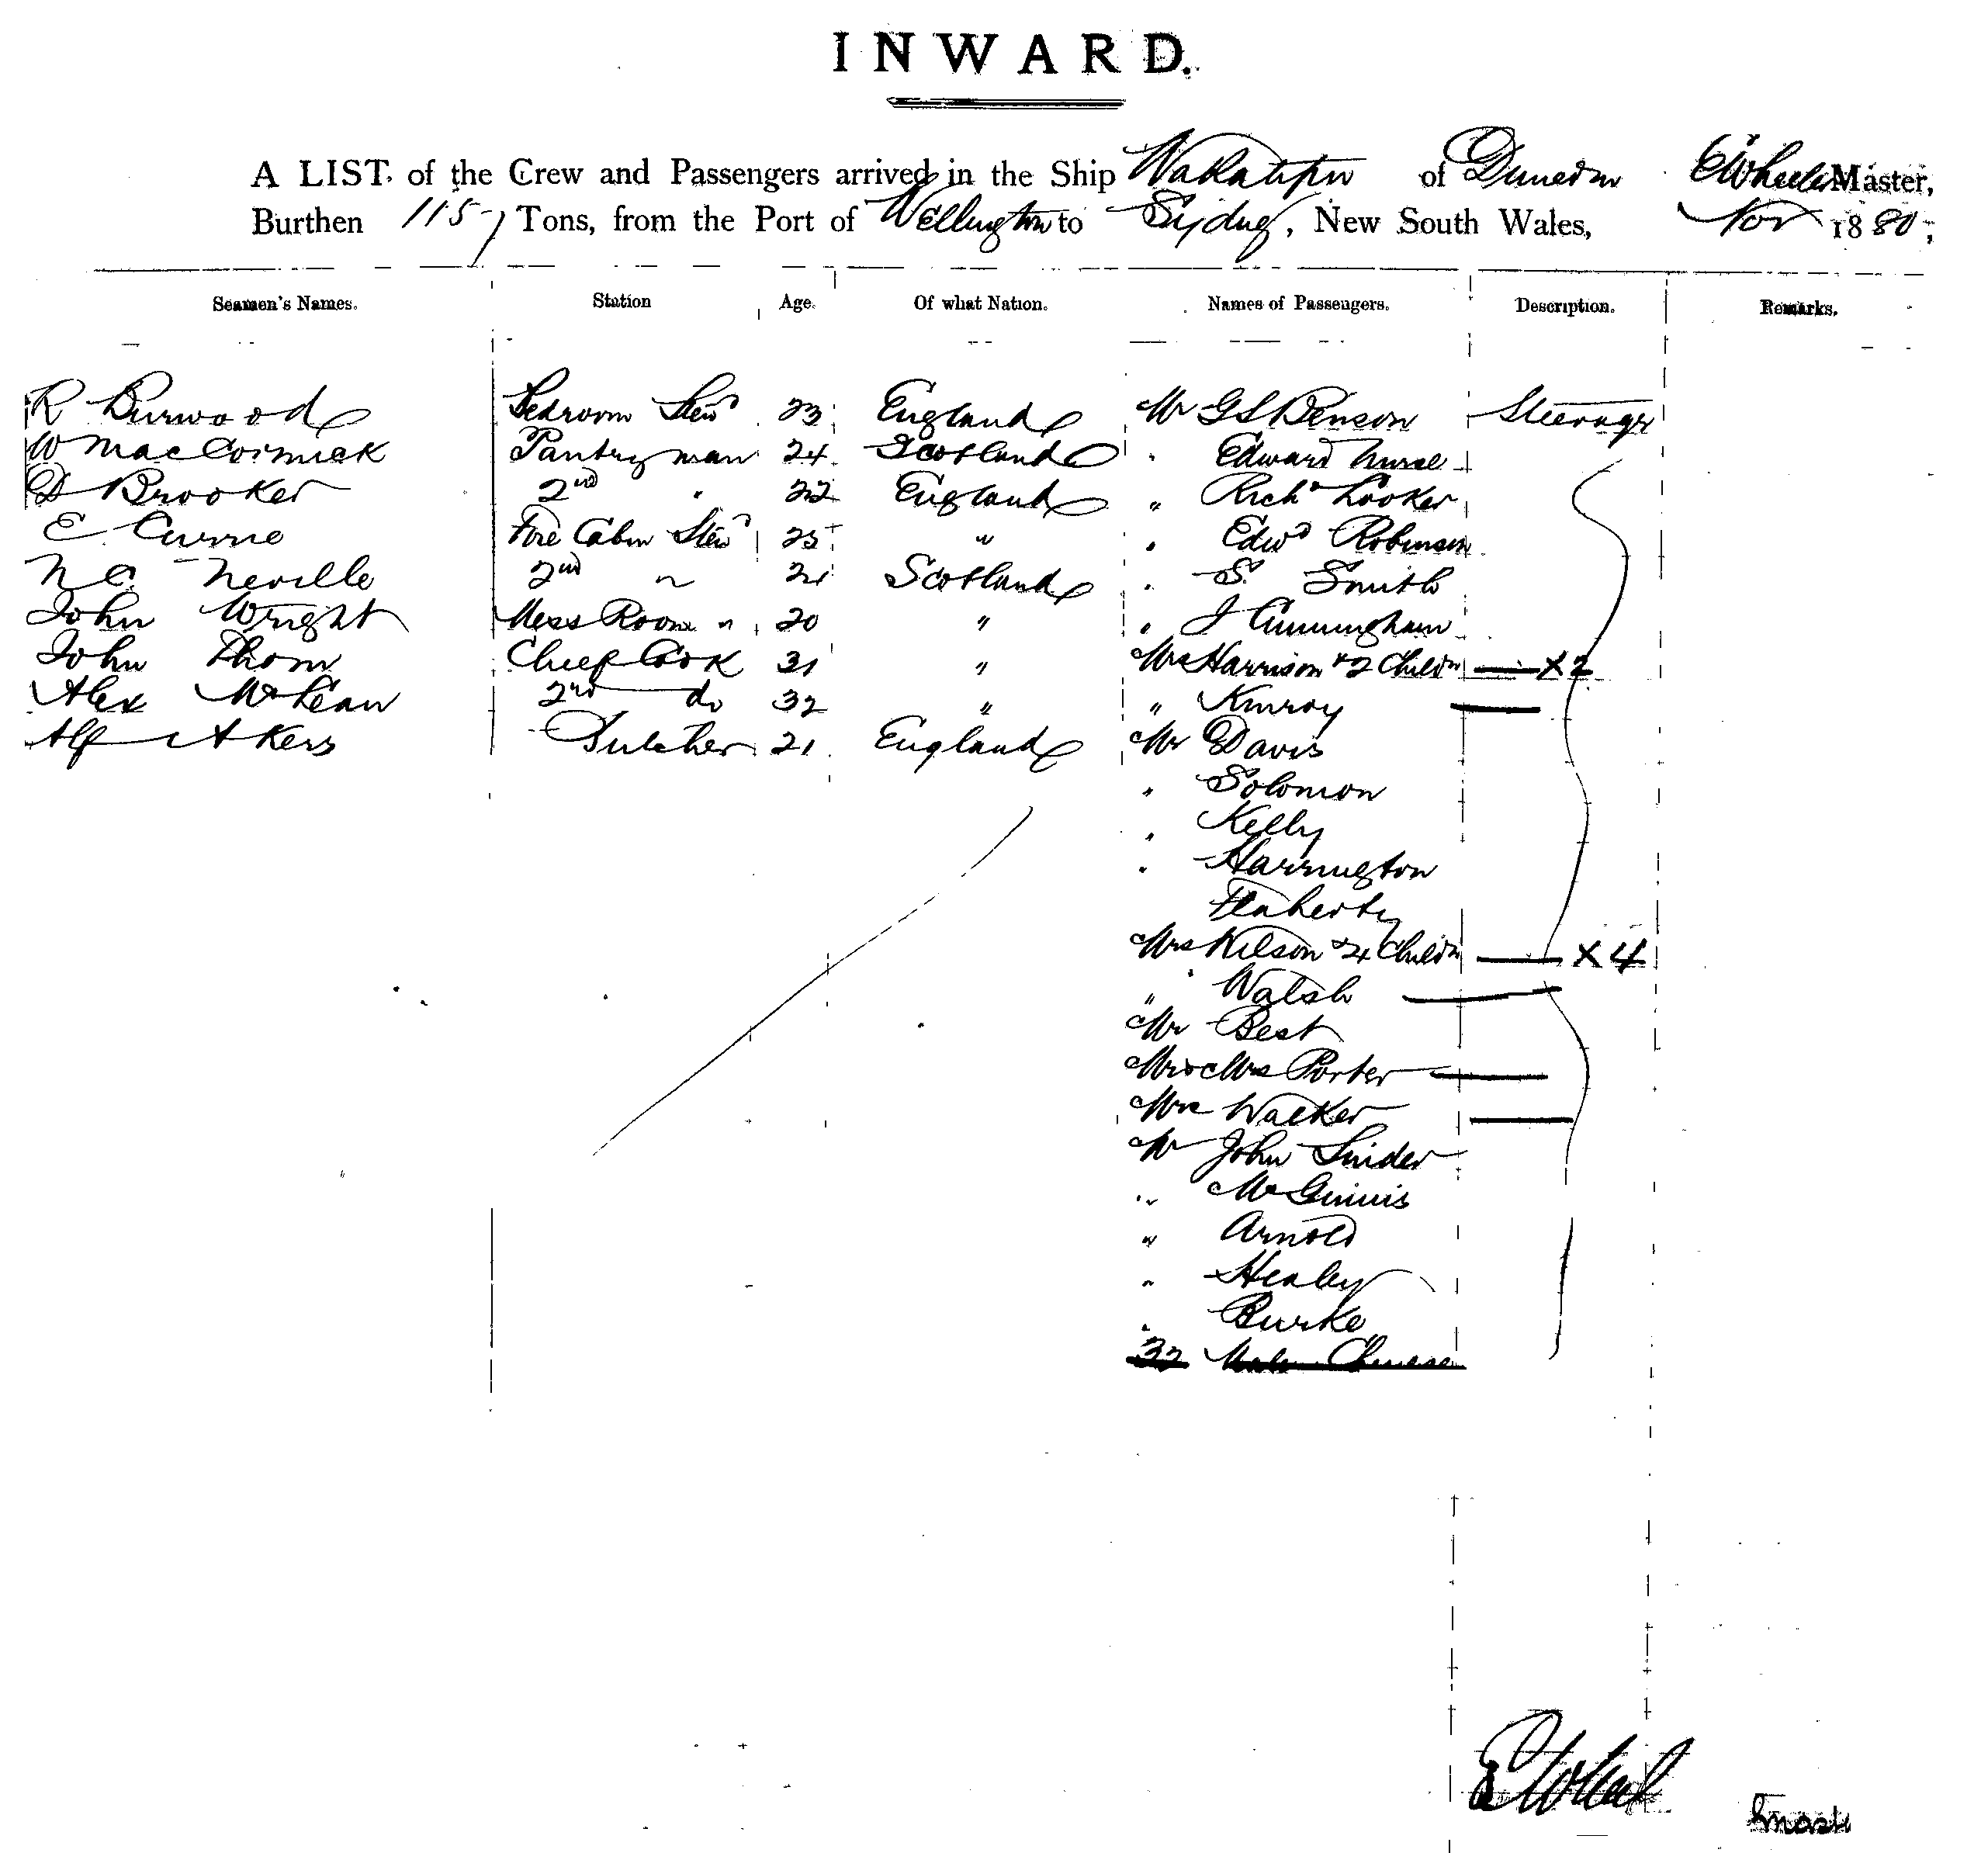 INWARD.
A LIST of the Crew and Passengers arrived in the Ship Wakatipu of Dunedin E Wheeler Master,
Burthen 115 Tons, from the Port of Wellington to Sydney, New South Wales, Nov 1880;
Seamen's Names. Station Age. Of what Nation. Names of Passengers. Description. Remarks.
R Burwood Bedroom Stewd 23 England Mr G S Benson Steerage
W MacCormick Pantryman 24 Scotland " Edward Nurse
D Brooker 2nd " 22 England " Richd Looker
E Currie Fore Cabin Stewd 25 " " Edwd Robinson
N C. Neville 2nd " 21 Scotland " S. Smith
John Wright Mess Room " 20 " " J Cunningham
John Thom Chief Cook 31 " Mrs Harrison & 2 Childn X2
Alex McLean 2nd do 32 " " Kinroy
Alf Akers Butcher 21 England Mr Davis
" Solomon
" Kelly
" Harrington
Flaherty
Mrs Wilson & 4 Childn X4
" Walsh
Mr Best
Mr & Mrs Porter
Mrs Walker
Mr John Snider
" McGinnis
" Arnold
" Healey
" Burke
32 Male Chinese